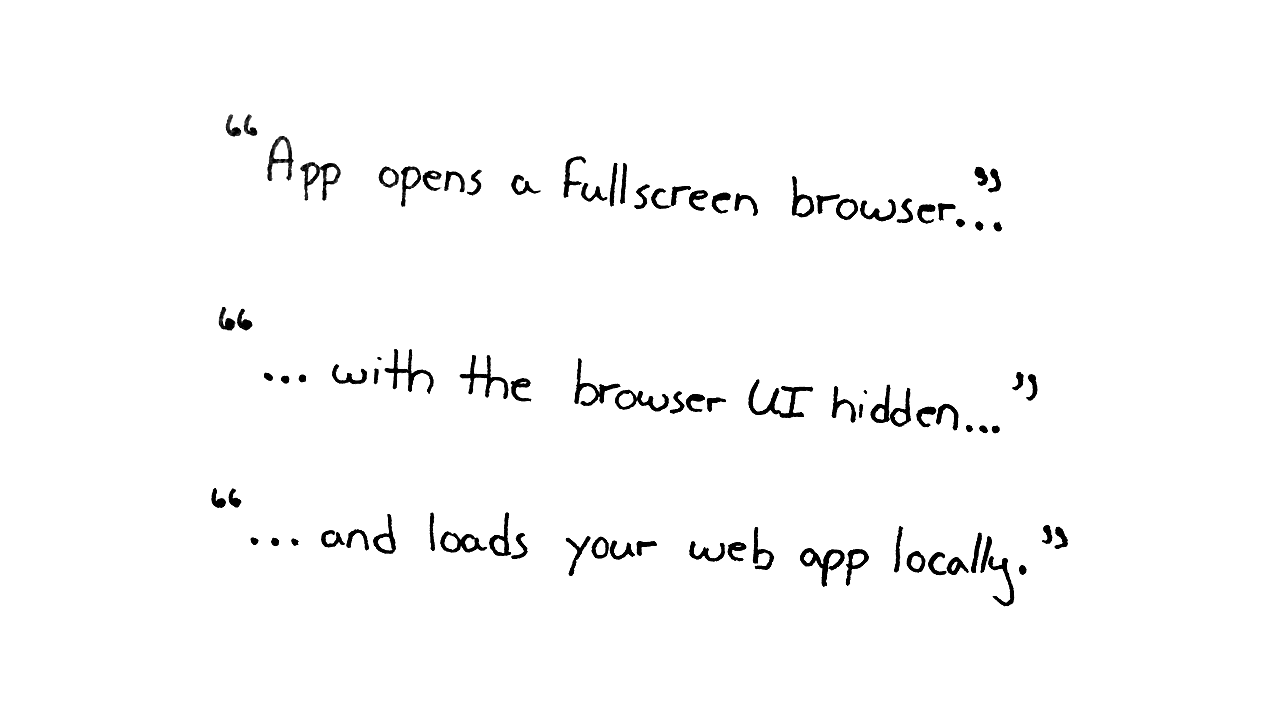 “App opens a fullscreen browser...”
“... with the browser UI hidden...”
“... and loads your web app locally.”